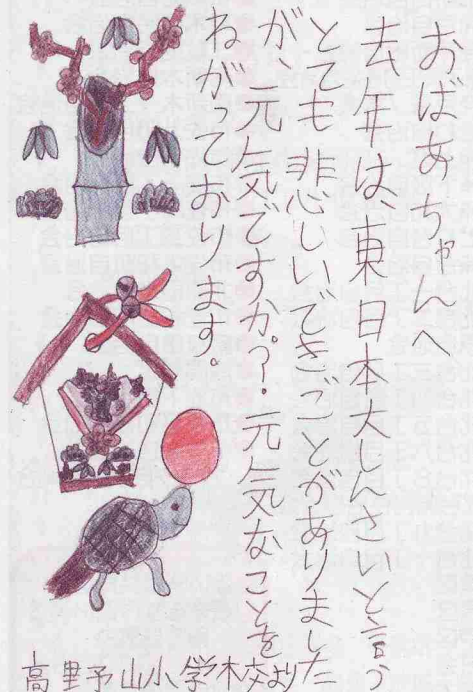 おばあちゃんへ
去年は、東日本大しんさいと言う
とても悲しいできごとがありました
が、元気ですか?元気なことを
ねがっております。
高野山小学校より